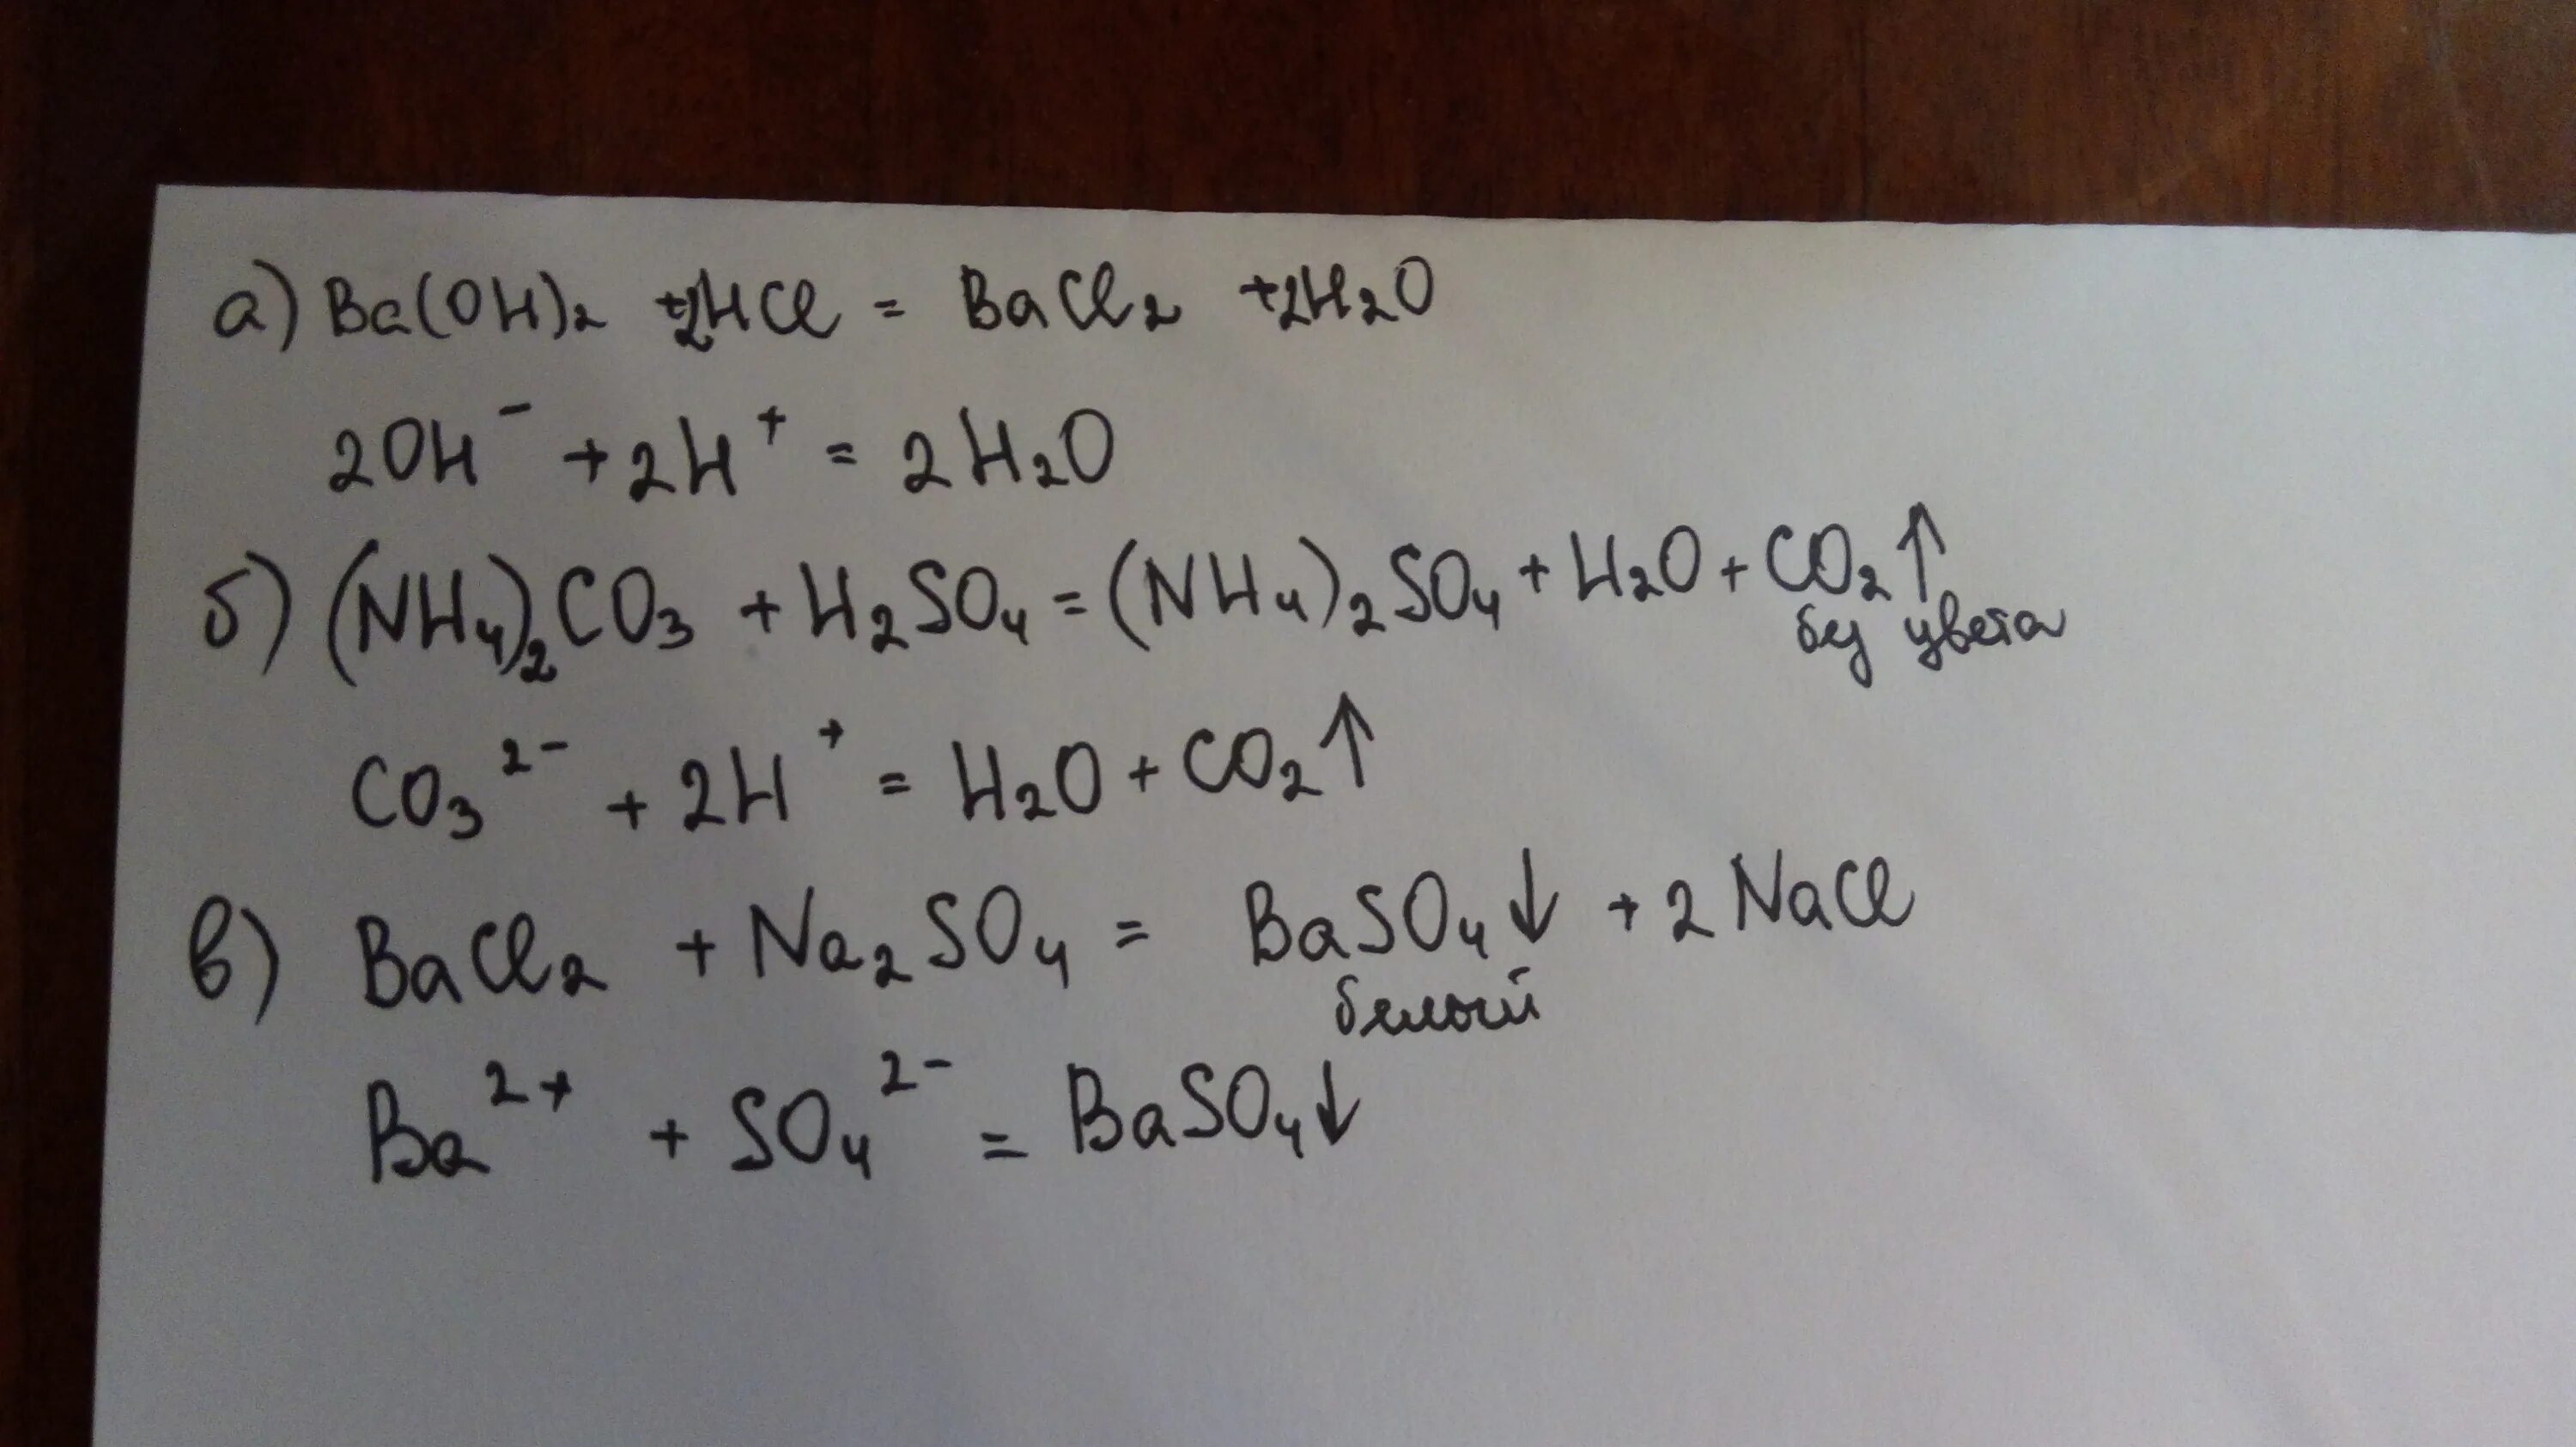 а) Ba(OH)₂ +2HCl = BaCl₂ +2H₂O
2OH⁻ + 2H⁺ = 2H₂O
б) (NH₄)₂CO₃ + H₂SO₄ = (NH₄)₂SO₄ + H₂O + CO₂↑
без цвета
CO₃²⁻ + 2H⁺ = H₂O + CO₂↑
в) BaCl₂ + Na₂SO₄ = BaSO₄↓ + 2NaCl
белый
Ba²⁺ + SO₄²⁻ = BaSO₄↓